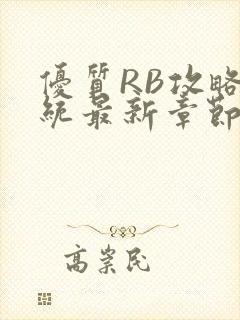 優質RB攻略
統最新章節
高崇民